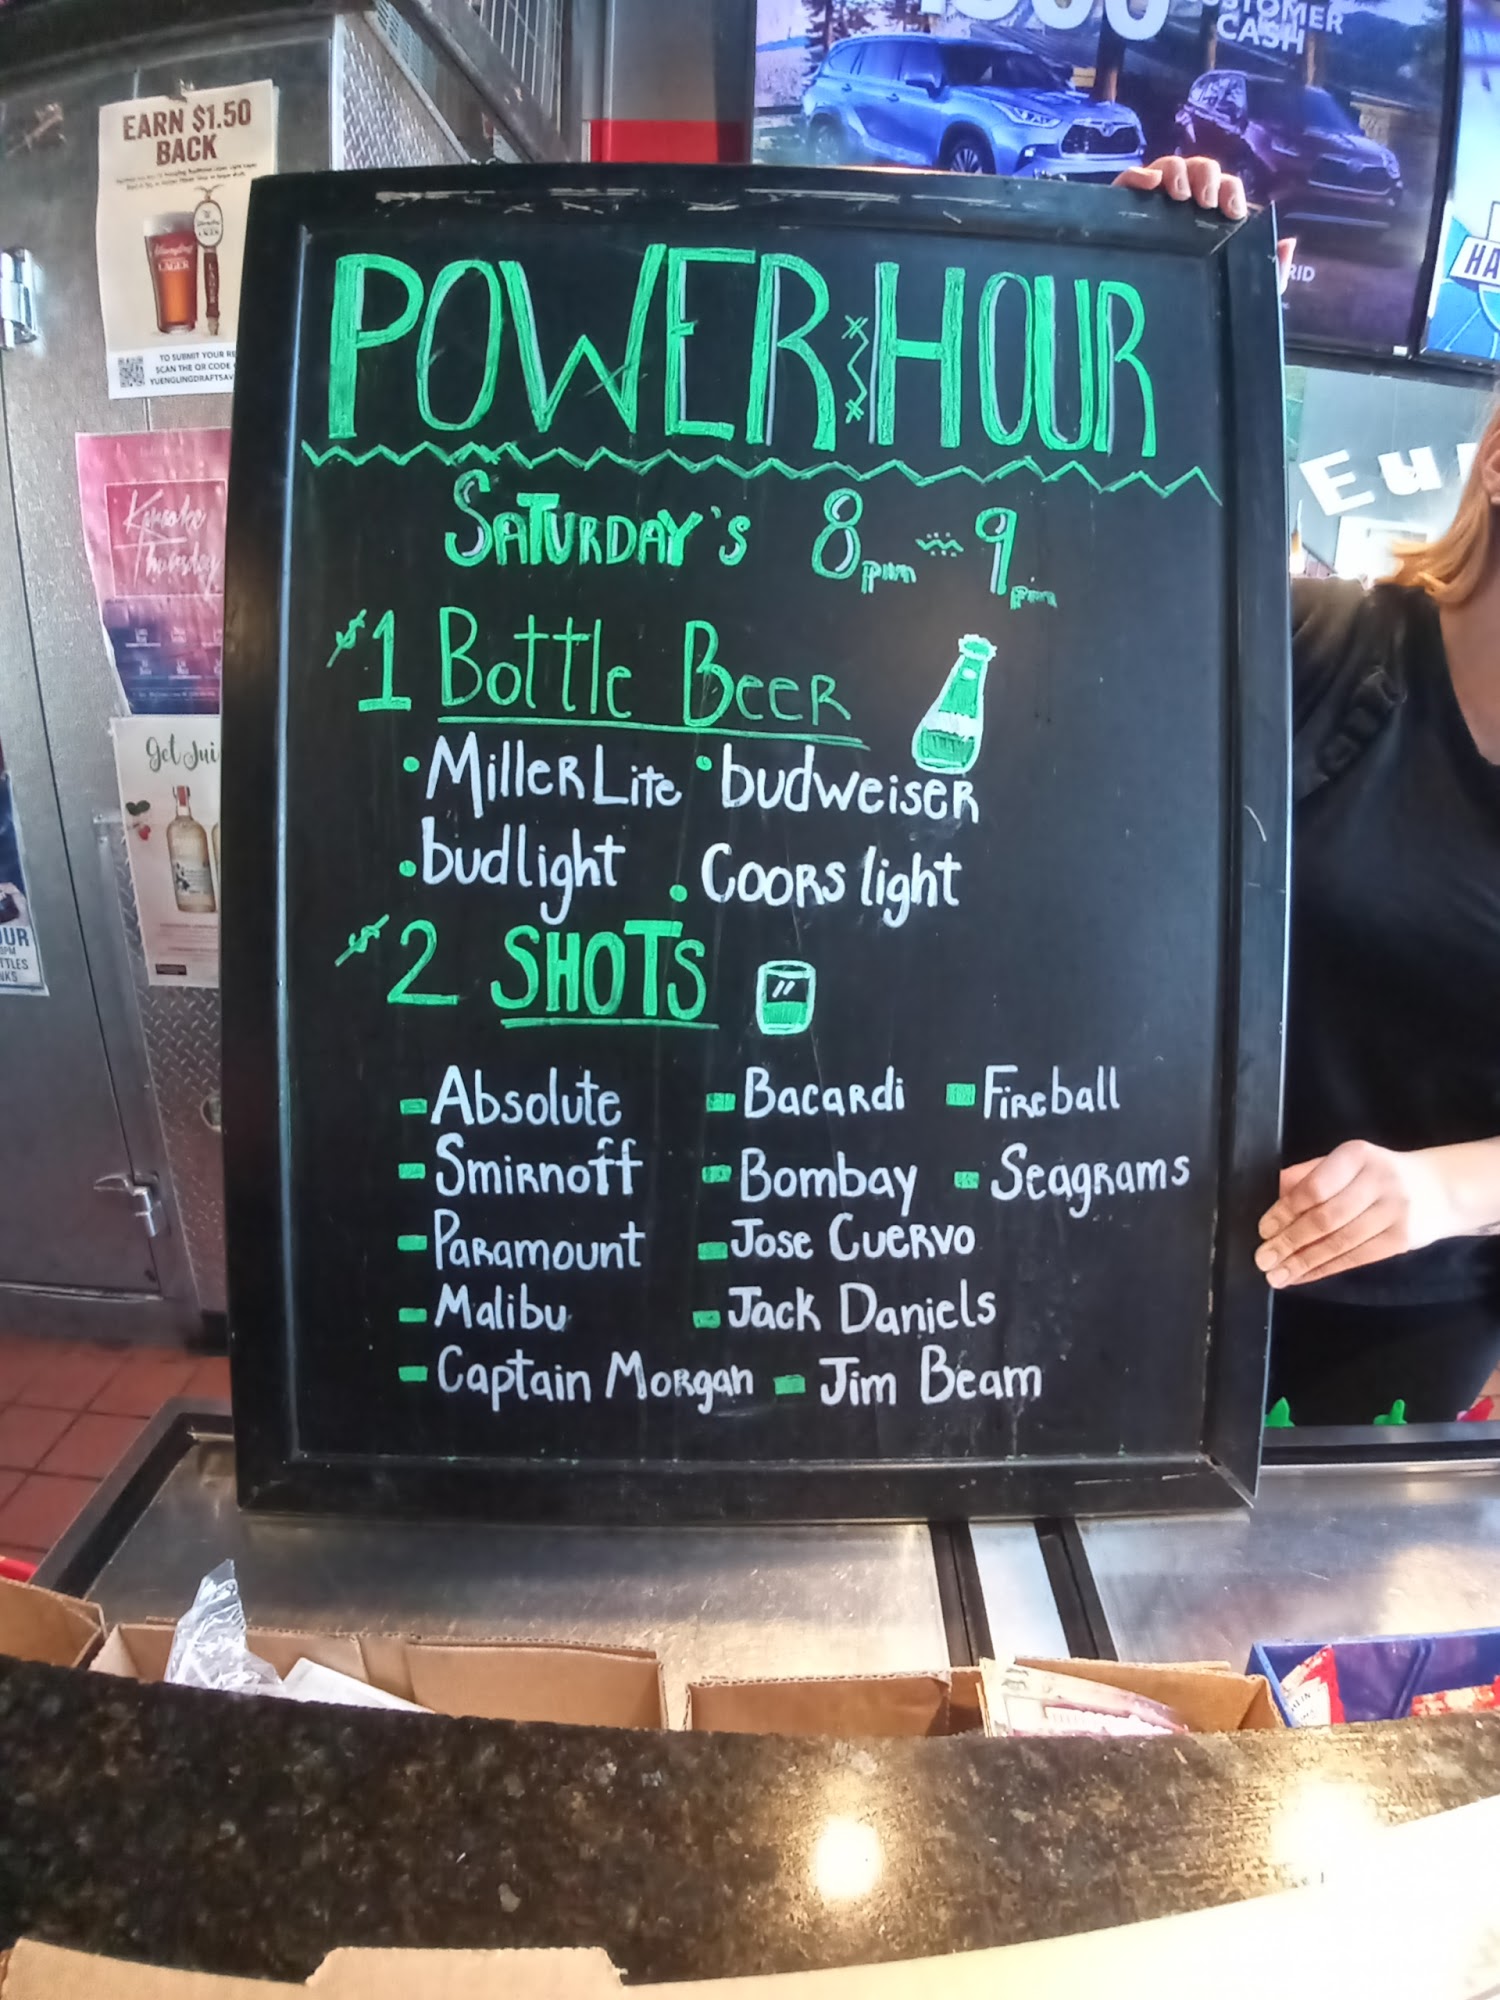 EARN $1.50
BACK
LAGER
TO SUBMIT YOUR
SCAN THE QR CODE
Karaoke
Thursday
Get
CUSTOMER
CASH
POWER HOUR
SATURDAY'S 8pm ~ 9pm
$1 Bottle BeeR
• MilleR Lite • budweiseR
• budlight • CooRs light
$2 SHOTS
- Absolute - BacaRdi - FiReball
- SmiRnoff - Bombay - SeagRams
- PaRamount - Jose CueRvo
- Malibu - Jack Daniels
- Captain MoRgan - Jim Beam